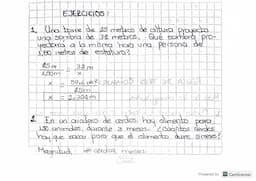 EJERCICIOS:
1. Una torre de 25 metros de altura proyecta
una sombra de 32 metros. Qué sombra pro-
yectará a la misma hora una persona de
1,80 metros de estatura?
25m = 32m
1,80m x
x =
25m
x = 2,304m
2. En un criadero de cerdos hay alimento para
animales, durante 3 meses. ¿Cuántos cerdos
hay que sacar para que el alimento dure meses?
Magnitud meses
Powered by CamScanner